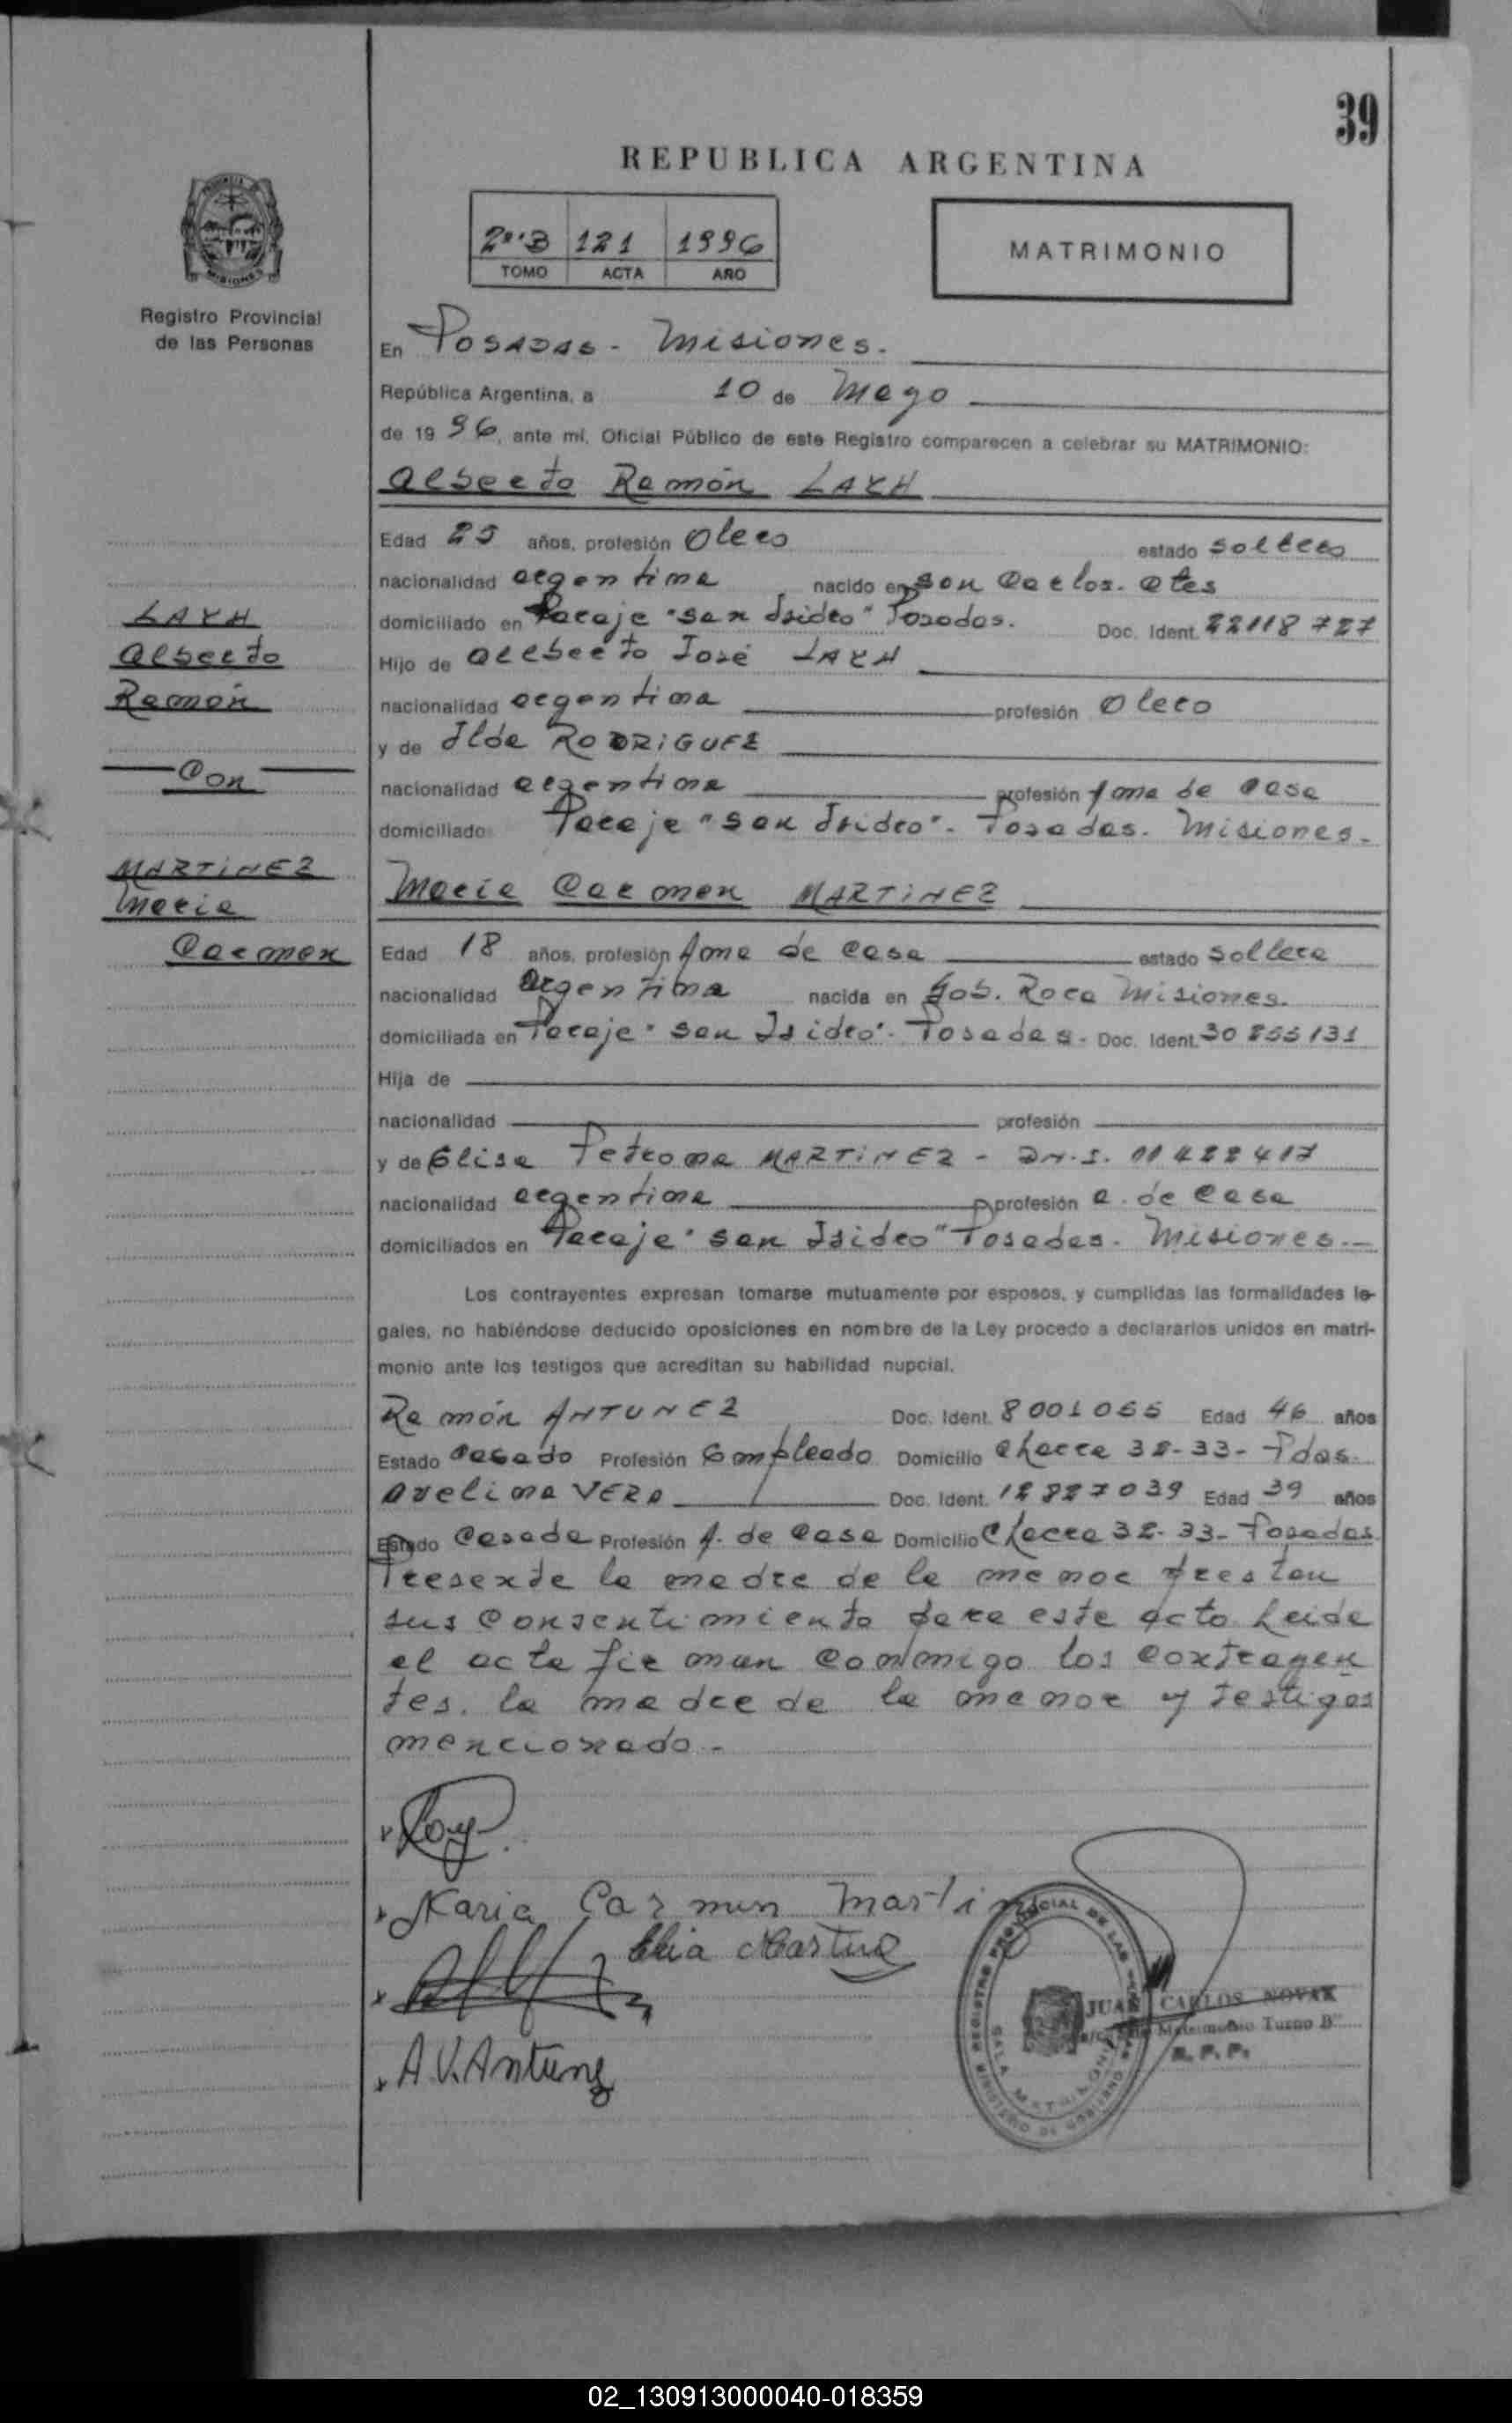 39
REPUBLICA ARGENTINA
2º B 121 1996
TOMO ACTA AÑO
MATRIMONIO
Registro Provincial
de las Personas
En Posadas - Misiones.
República Argentina, a 10 de Mayo
de 19 96, ante mí, Oficial Público de este Registro comparecen a celebrar su MATRIMONIO:
Alberto Ramón
Edad 25 años, profesión Olero estado soltero
nacionalidad argentina nacido en San Carlos. Ctes
domiciliado en Paraje "San Isidro" Posadas. Doc. Ident. 22118727
Hijo de Alberto José
nacionalidad argentina profesión Olero
y de Ilda RODRIGUEZ
nacionalidad argentina profesión Ama de casa
domiciliado Paraje "San Isidro". Posadas. Misiones.
Alberto
Ramón
Con
MARTINEZ
Maria
Carmen
Maria Carmen MARTINEZ
Edad 18 años, profesión Ama de casa estado soltera
nacionalidad argentina nacida en Gob. Roca Misiones.
domiciliada en Paraje "San Isidro". Posadas. Doc. Ident. 30855131
Hija de
nacionalidad profesión
y de Elisa Petrona MARTINEZ - D.N.I. 11422417
nacionalidad argentina profesión a. de casa
domiciliados en Paraje "San Isidro" Posadas. Misiones.
Los contrayentes expresan tomarse mutuamente por esposos, y cumplidas las formalidades le-
gales, no habiéndose deducido oposiciones en nombre de la Ley procedo a declararlos unidos en matri-
monio ante los testigos que acreditan su habilidad nupcial.
Ramón ANTUNEZ Doc. Ident. Edad 46 años
Estado Casado Profesión Empleado Domicilio Chacra 32-33- Pdas.
Avelina VERA Doc. Ident. Edad 39 años
Estado Casada Profesión A. de casa Domicilio Chacra 32-33- Posadas.
Presente la madre de la menor prestan
sus consentimiento para este acto leida
el acta firman conmigo los contrayen
tes, la madre de la menor y testigos
mencionado.-
Maria Carmen
A.V. Antunez
REGISTRO PROVINCIAL DE LAS PERSONAS
SALA MATRIMONIO
MINISTERIO DE GOBIERNO
JUAN CARLOS NOVAK
Matrimonio Turno B"
R. P. P.
02_130913000040-018359